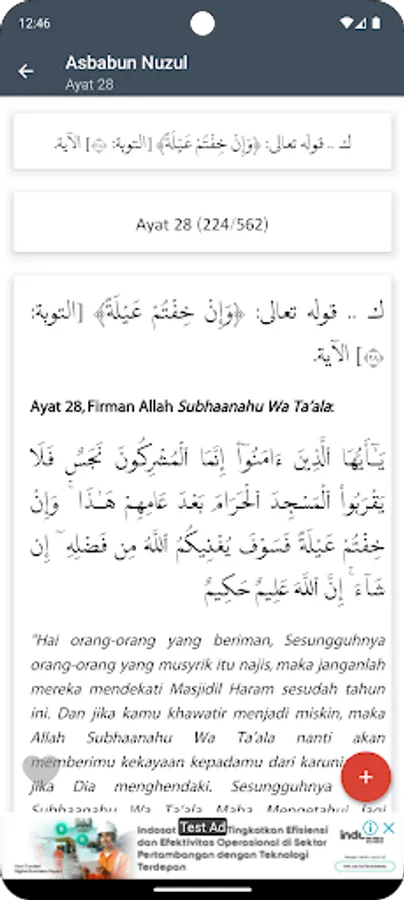 12:46
Asbabun Nuzul
Ayat 28
ك .. قوله تعالى: ﴿وَإِنْ خِفْتُمْ عَيْلَةً﴾ [التوبة: ٢٨] الآية.
Ayat 28 (224/562)
ك .. قوله تعالى: ﴿وَإِنْ خِفْتُمْ عَيْلَةً﴾ [التوبة:
٢٨] الآية.
Ayat 28, Firman Allah Subhaanahu Wa Ta'ala:
يَـٰٓأَيُّهَا الَّذِينَ ءَامَنُوٓاْ إِنَّمَا الْمُشْرِكُونَ نَجَسٌ فَلَا
يَقْرَبُواْ الْمَسْجِدَ الْحَرَامَ بَعْدَ عَامِهِمْ هَـٰذَا ۚ وَإِنْ
خِفْتُمْ عَيْلَةً فَسَوْفَ يُغْنِيكُمُ اللَّهُ مِن فَضْلِهِۦٓ إِن
شَآءَ ۚ إِنَّ اللَّهَ عَلِيمٌ حَكِيمٌ
"Hai orang-orang yang beriman, Sesungguhnya
orang-orang yang musyrik itu najis, maka janganlah
mereka mendekati Masjidil Haram sesudah tahun
ini. Dan jika kamu khawatir menjadi miskin, maka
Allah Subhaanahu Wa Ta'ala nanti akan
memberimu kekayaan kepadamu dari
jika Dia menghendaki. Sesungguhnya
Subhaanahu Wa Ta'ala Maha Mengetahui lagi
Indosat Test Ad Tingkatkan Efisiensi
dan Efektivitas Operasional di Sektor
Pertambangan dengan Teknologi
Terdepan